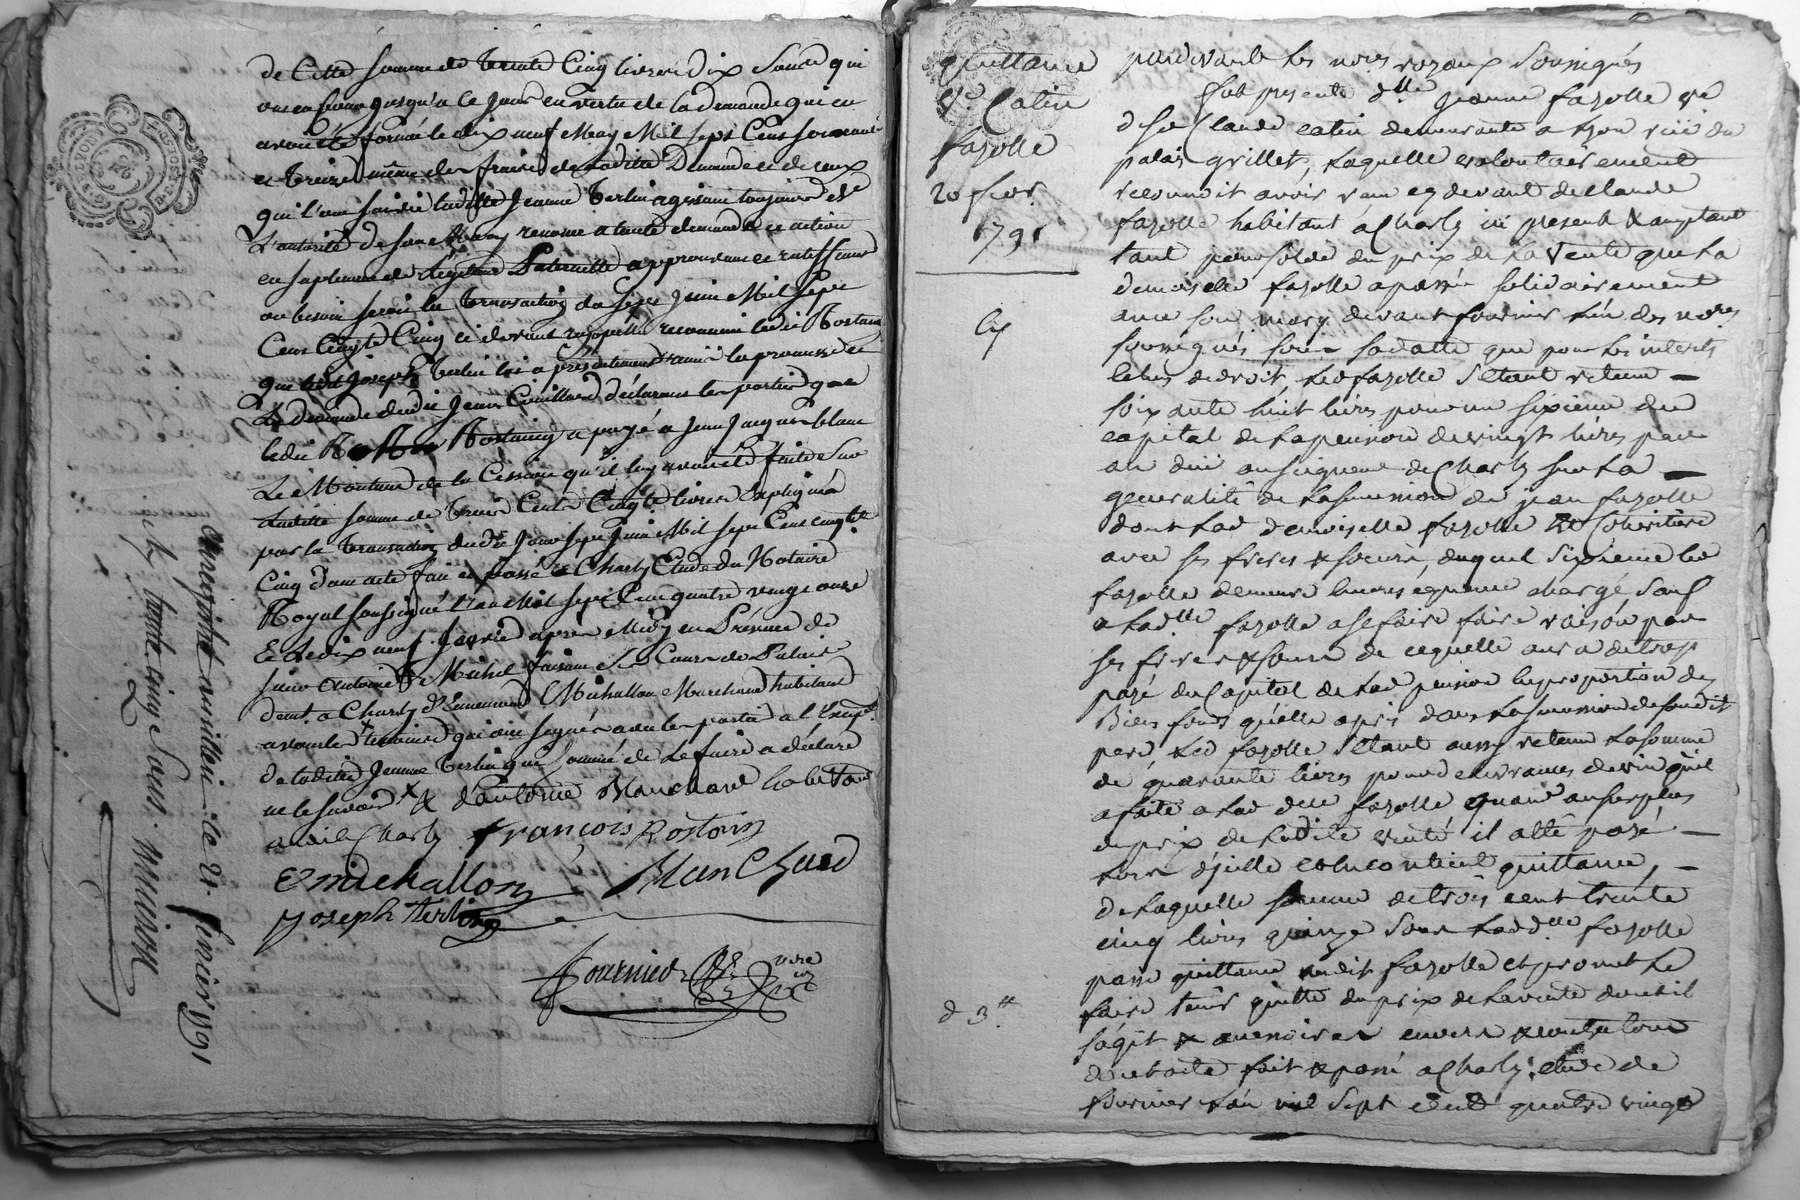 de Cette somme de trente Cinq livres dix Sous qui
ont eu cours jusqu'a ce Jour en vertu de la demande qui en
avoit été formée le dix neuf May Mil sept Cent soixante
et treize même des fraix de ladite Demande et de ceux
qui l'ont suivie ladite Jeanne Terlin agissant toujours de
L'autorité de son Mary renonce a toute demande et action
en suplement de légitime Paternelle approuvant et ratiffiant
au besoin seroit la transaction du sept Juin Mil sept
Cent Cinqte Cinq ci devant rappellé reconnoit ledit Rostain
que ledit Joseph Terlin lui a présentement remis la promesse et
La demande dudit Jean Cimillard déclarant les parties que
ledit Rostaing a payé a Jean Jacques blanc
Le Montant de la Cession qu'il luy avoit été faite Sur
Ladite somme de trois Cents Cinqte livres Expliquée
par la transaction dudit Jour sept Juin Mil sept Cent cinqte
Cinq dont acte fait et passé a Charly Etude du Notaire
Royal soussigné L'an Mil sept Cent quatre vingt onze
Et le dix neuf Janvier après Midy en Présence de
sieur Antoine Michel faisant ses Cours de Palais
demt. a Charly Ennemond Michallon Marchand habitant
avec les témoins qui ont signés avec les parties a l'Exept.
de ladite Jeanne Terlin qui Sommée de Le faire a déclaré
ne le savoir x & d'antoine Manchard habitant
audit Charly françois Rostain
E michallon Manchard
Joseph terlin
Fournier nore
Enregistré a millery le 2. fevrier 1791
trente cinq Sous.
quittance
Ve Catin
fayolle
20 fier
1791
d 3 tt
pardevant les nores royaux Soussignés
fut presente dlle jeanne fayolle ve
de Sr Claude catin demeurante a Lyon rüe du
palais grillet, Laquelle volontairement
reconnoit avoir reçu cy devant de Claude
fayolle habitant a Charly ici present & acceptant
tant pour solde du prix de La Vente que La
demoiselle fayolle a passé solidairement
avec son mary devant fournier L'un des nores
soussignés sous sa datte que pour les interets
lebus de droit, Led fayolle S'etant retenu
soixante huit livres pour un sixieme du
capital de La pension de vingt livres par
an düe au seigneur de Charly sur La
generalité de La succession de jean fayolle
dont Lad demoiselle fayolle est Coheritiere
avec ses freres & soeurs, duquel sixieme led
fayolle demeure chargé Sauf
a Ladlle fayolle a se faire faire raison par
ses freres & soeurs de ce quelle aura de trop
payé du Capital de Lad pension a proportion des
Biens fonds quelle a pris dans La succession de sondit
pere Led fayolle S'etant aussy retenu La somme
de quarante livres pour de vin quil
a fait a Lad dlle fayolle quand au surplus
du prix de Ladite vente il a été payé
Lors d'icelle en contient quittance,
de Laquelle somme de trois cent trente
cinq livres quinze Sous Lad dlle fayolle
passe quittance audit fayolle et promet Le
faire tenir quitte du prix de La vente dont il
s'agit & envers & contre tous
dont acte fait & passé a Charly, etude de
fournier L'an mil Sept cent quatre vingt